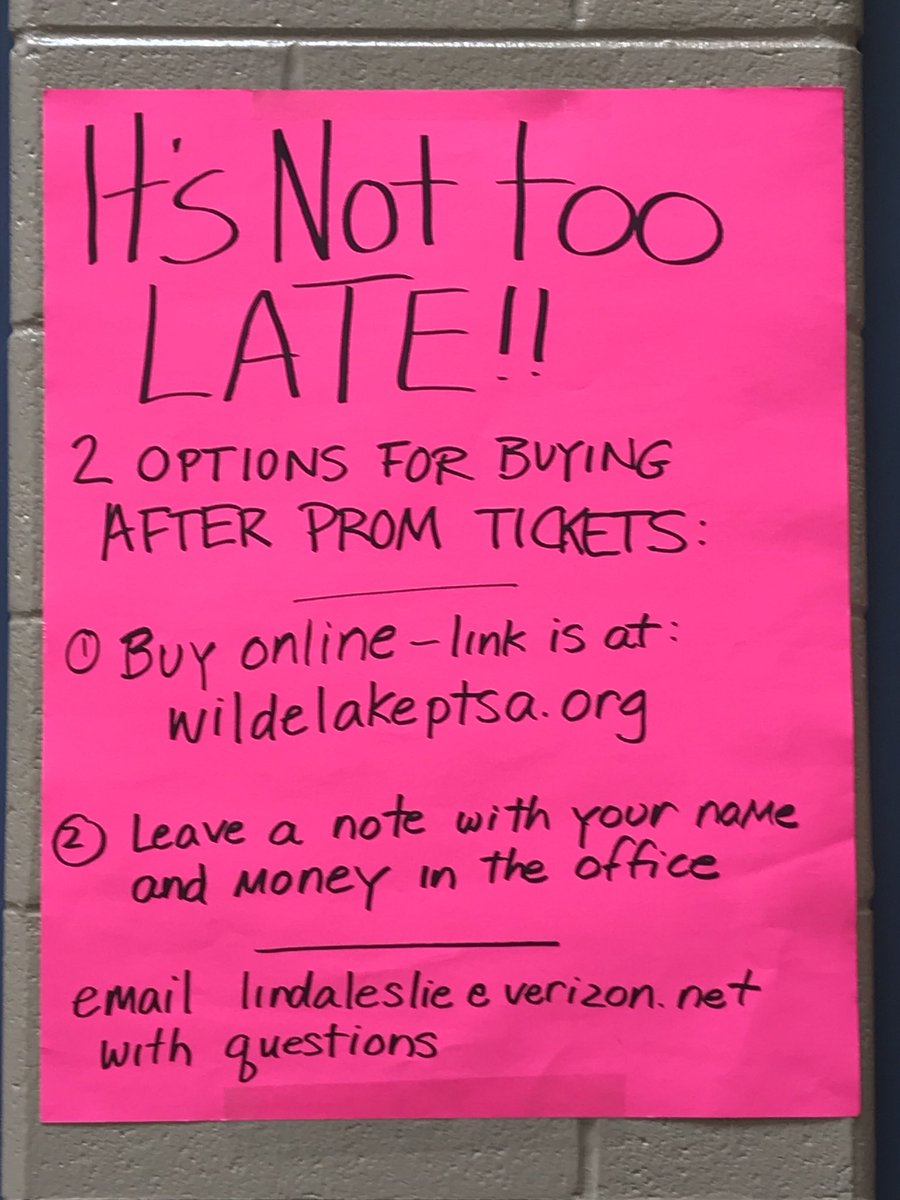 It's Not too
LATE!!
2 OPTIONS FOR BUYING
AFTER PROM TICKETS:
① Buy online - link is at:
wildelakeptsa.org
② Leave a note with your name
and money in the office
email lindaleslie@verizon.net
with questions